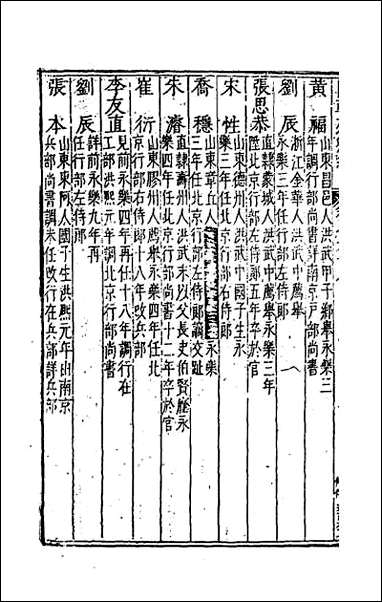 黄福
山東昌邑人洪武甲子鄉舉永樂三
年調行部尚書詳南京戸部尚書
劉辰
浙江金華人洪武中薦舉
永樂三年任行部左侍郎
張思恭
直隸蒙城人洪武中薦舉永樂三年
陞北京行部左侍郎五年卒於官
宋性
山東德州人洪武中國子生永
樂三年任北京行部右侍郎
喬穩
山東章丘人洪武 永樂
三年任北京行部左侍郎調交趾
朱濬
直隸壽州人洪武末以父長史伯賢廕永
樂四年任北京行部尚書十二年卒於官
崔衍
山東膠州人薦舉永樂四年任北
京行部右侍郎十八年改兵部
李友直
見前永樂四年再任十八年調行在
工部洪熙元年調北京行部尚書
劉辰
詳前永樂九年再
任行部左侍郎
張本
山東東阿人國子生洪熙元年由南京
兵部尚書調未任改行在兵部詳兵部